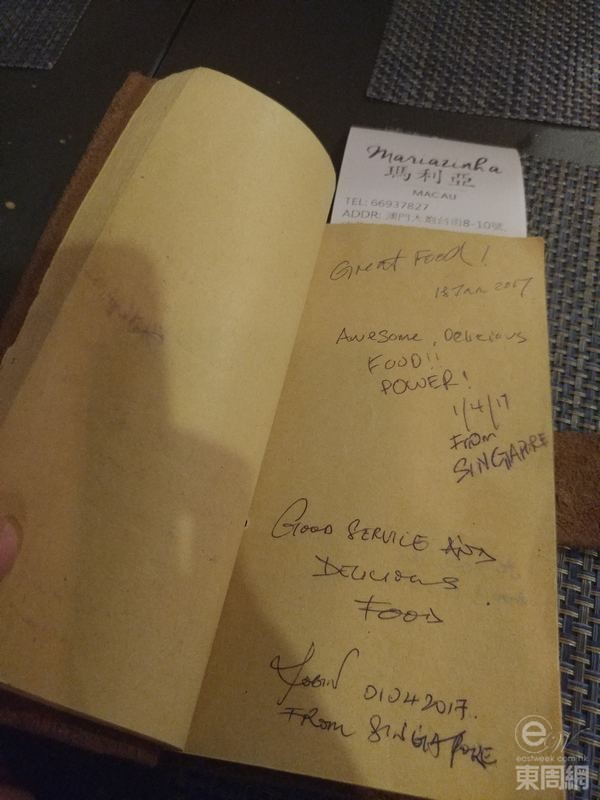 Mariazinha
瑪利亞
MACAU
TEL: 66937827
ADDR: 澳門大炮台街8-10號
Great Food!
18 Jan 2017
Awesome, Delicious
FOOD!!
POWER!
1/4/17
From
SINGAPORE
GOOD SERVICE AND
DELICIOUS
FOOD
01042017.
FROM SINGAPORE
eW
eastweek.com.hk
東周網